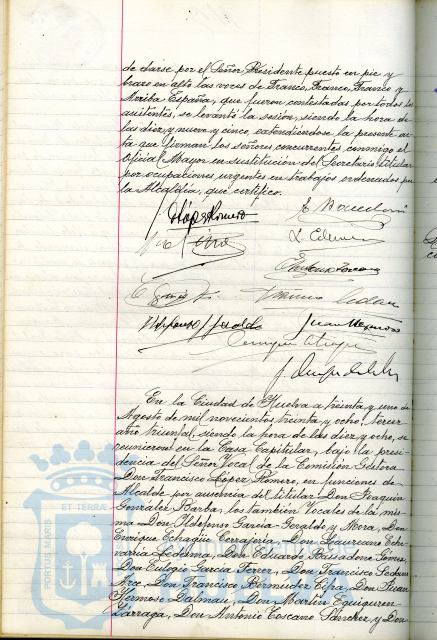 de darse por el Señor Presidente puesto en pie y
brazo en alto las voces de Franco, Franco, Franco y
Arriba España, que fueron contestadas por todos los
asistentes, se levantó la sesión, siendo la hora de
las diez y nueve y cinco, extendiéndose la presente ac-
ta que firman los señores concurrentes, conmigo el
Oficial Mayor en sustitución del Secretario titular
por ocupaciones urgentes en trabajos ordenados por
la Alcaldía, que certifico.
López Romero
En la Ciudad de Huelva a treinta y uno de
Agosto de mil novecientos treinta y ocho, tercer
año triunfal, siendo la hora de las diez y ocho, se
reunieron en la Casa Capitular, bajo la presi-
dencia del Señor Vocal de la Comisión Gestora
Don Francisco López Romero, en funciones de
Alcalde por ausencia del titular Don Joaquín
González Barba, los también Vocales de la mis-
ma Don Ildefonso García-Geraldo y Mora, Don
Enrique Echagüe Cerrajería, Don Laureano Eche-
varría Ledesma, Don Eduardo Bassadone Gómez,
Don Eulogio García Ferrer, Don Francisco Sedano
Arce, Don Francisco Bermúdez Cifra, Don Juan
Hermoso Dalonau, Don Martín Eguiguren
Zárraga, Don Antonio Toscano Sánchez, y Don
PORTUS MARIS
ET TERRAE